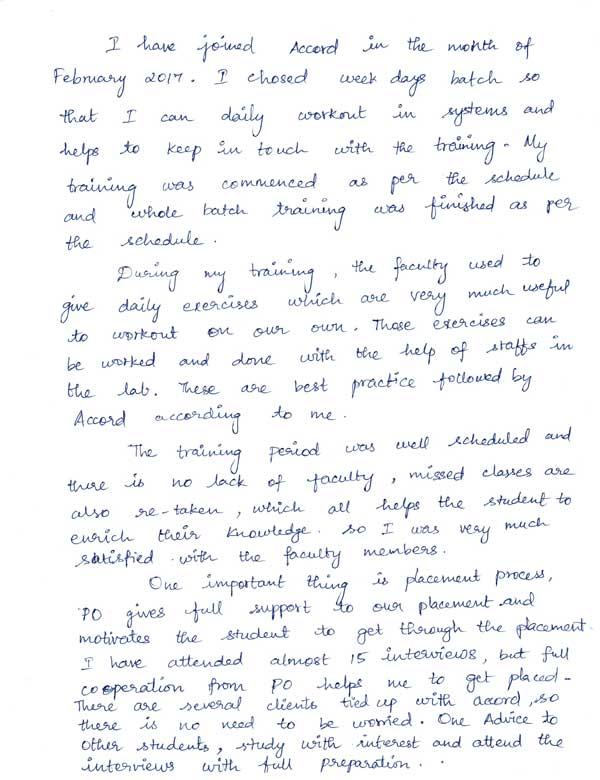 I have joined Accord in the month of
February 2017. I chosed week days batch so
that I can daily workout in systems and
helps to keep in touch with the training. My
training was commenced as per the schedule
and whole batch training was finished as per
the schedule.
During my training, the faculty used to
give daily exercises which are very much useful
to workout on our own. Those exercises can
be worked and done with the help of staffs in
the lab. These are best practice followed by
Accord according to me.
The training period was well scheduled and
there is no lack of faculty, missed classes are
also re-taken, which all helps the student to
enrich their knowledge. So I was very much
satisfied with the faculty members.
One important thing is placement process,
PO gives full support to our placement and
motivates the student to get through the placement.
I have attended almost 15 interviews, but full
cooperation from PO helps me to get placed.
There are several clients tied up with accord, so
there is no need to be worried. One Advice to
other students, study with interest and attend the
interviews with full preparation...